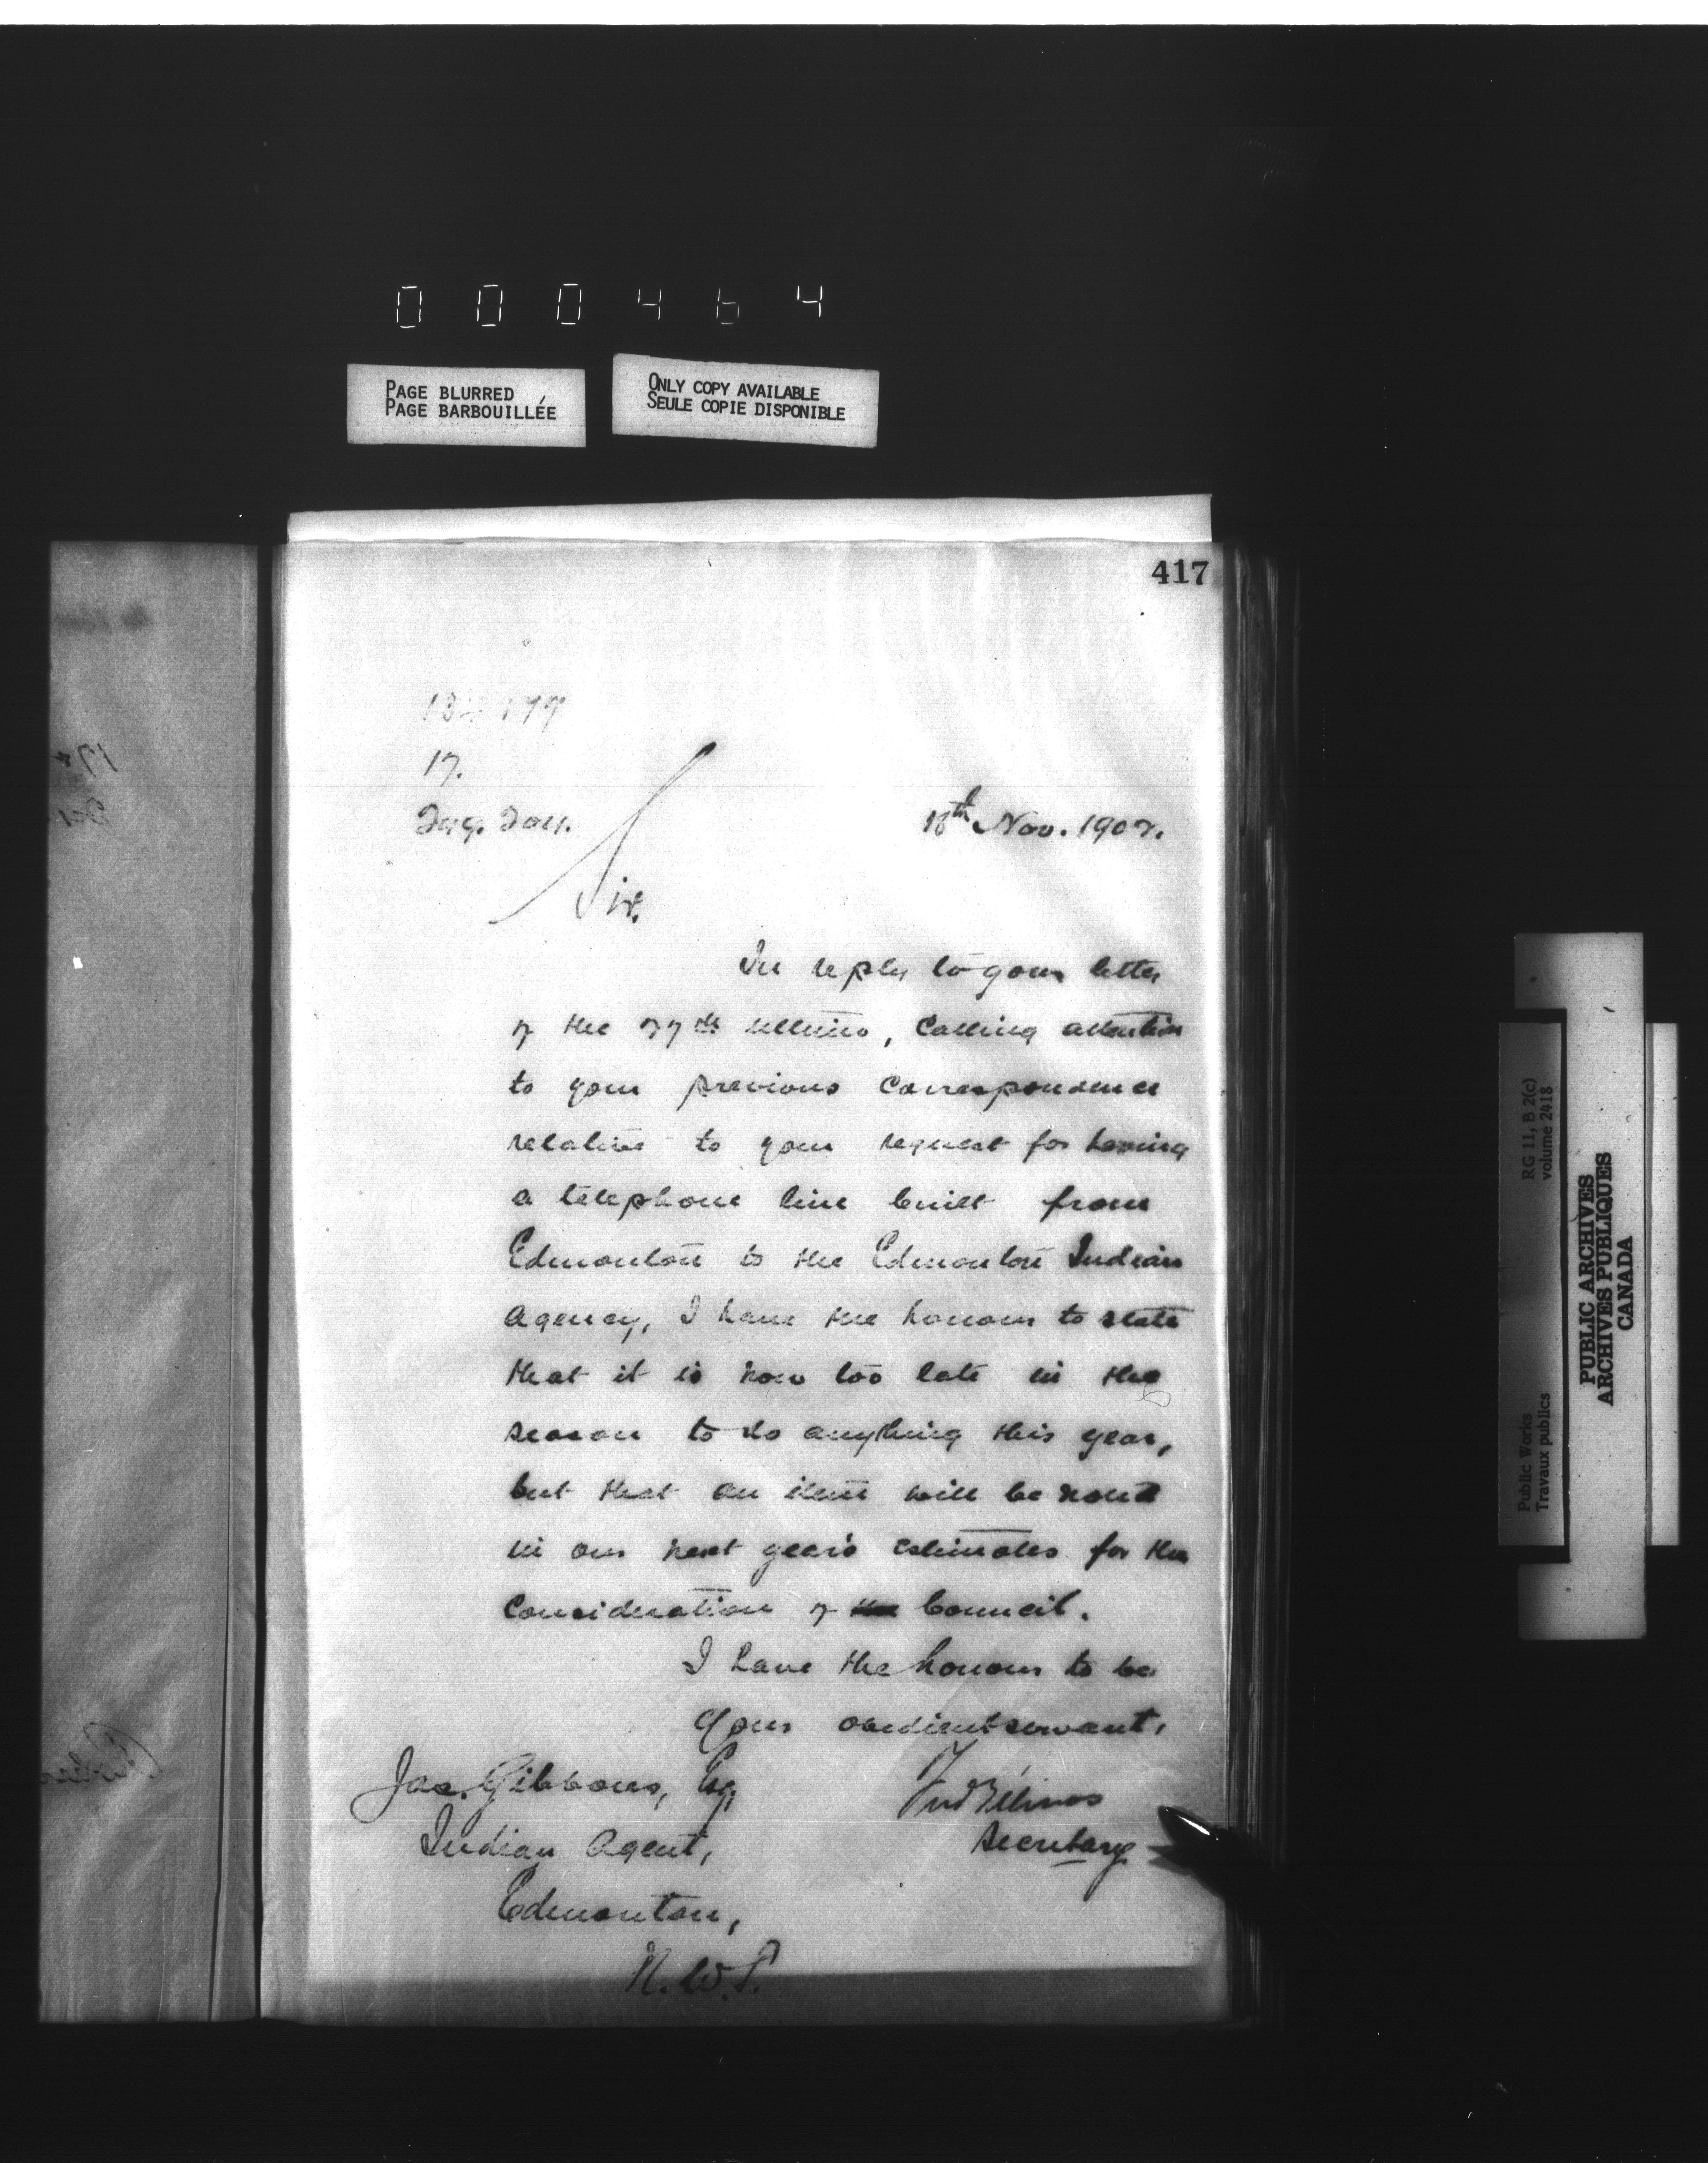 000464
PAGE BLURRED
PAGE BARBOUILLÉE
ONLY COPY AVAILABLE
SEULE COPIE DISPONIBLE
417
17.
18th Nov. 1902.
Sir.
In reply to your letter
of the 27th ultimo, calling attention
to your previous correspondence
relative to your request for having
a telephone line built from
Edmonton to the Edmonton Indian
Agency, I have the honour to state
that it is now too late in the
season to do anything this year,
but that an item will be noted
in our next year's estimates for the
consideration of the Council.
I have the honour to be
Your obedient servant,
Jas. Gibbons, Esq,
Indian Agent,
Edmonton,
N.W.T.
Fred Gélinas
Secretary
Public Works
Travaux publics
RG 11, B 2(c)
volume 2418
PUBLIC ARCHIVES
ARCHIVES PUBLIQUES
CANADA